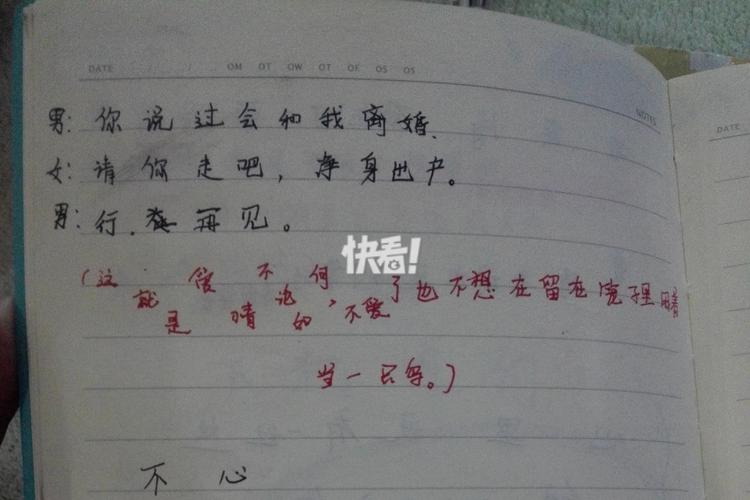 DATE OM OT OW OT OF OS OS
NOTES
DATE
男:你说过会和我离婚.
女:请你走吧,净身出户。
男:行.再见。
快看!
(这就是爱情不论的何,不爱了也不想在留在笼子里
当一只鸟。)
不 心